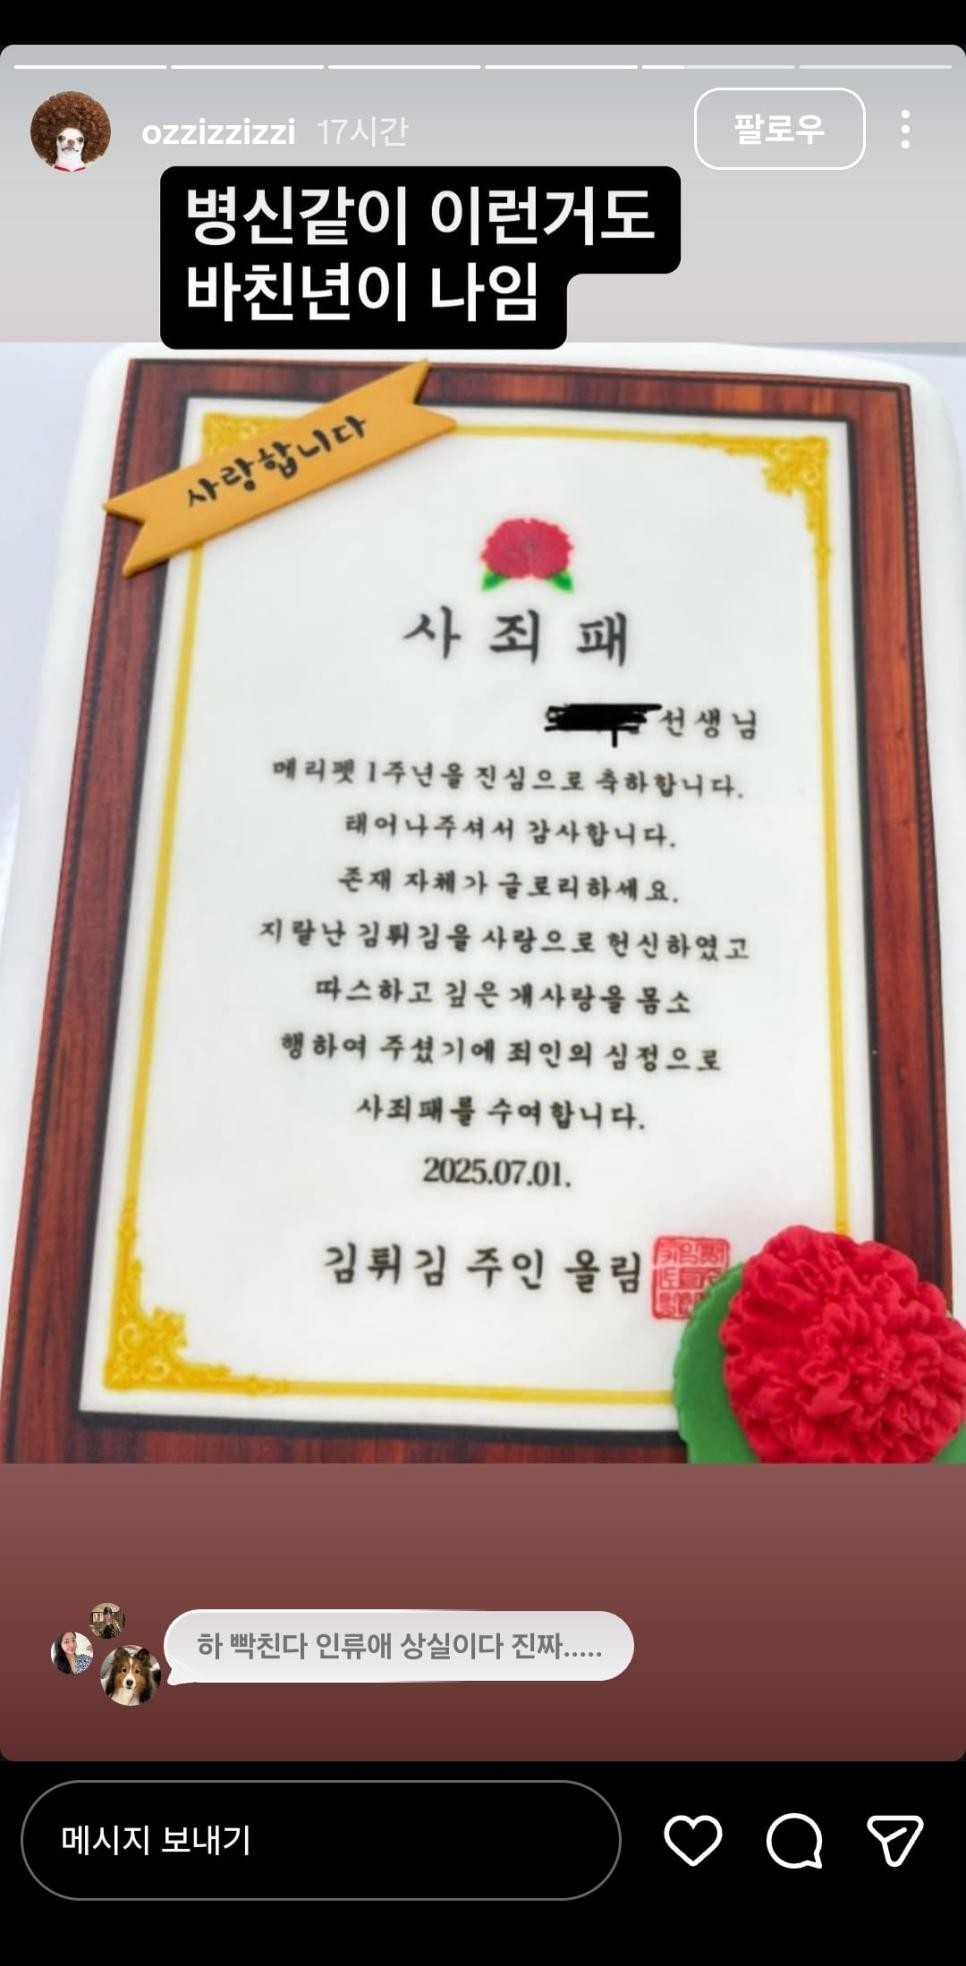 ozzizzizzi 17시간
팔로우
병신같이 이런거도
바친년이 나임
사랑합니다
사죄패
선생님
메리펫 1주년을 진심으로 축하합니다.
태어나주셔서 감사합니다.
존재 자체가 글로리하세요.
지랄난 김튀김을 사랑으로 헌신하였고
따스하고 깊은 개사랑을 몸소
행하여 주셨기에 죄인의 심정으로
사죄패를 수여합니다.
2025.07.01.
김튀김 주인 올림
하 빡친다 인류애 상실이다 진짜.....
메시지 보내기